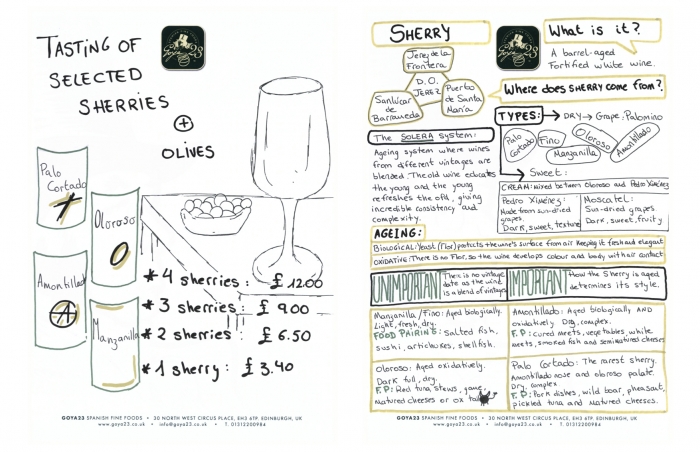 TASTING OF
SELECTED
SHERRIES
+
OLIVES
Palo
Cortado
Oloroso
Amontillado
Manzanilla
* 4 sherries : £ 12.00
* 3 sherries : £ 9.00
* 2 sherries : £ 6.50
* 1 sherry : £ 3.40
GOYA23 SPANISH FINE FOODS • 30 NORTH WEST CIRCUS PLACE, EH3 6TP, EDINBURGH, UK
www.goya23.co.uk • info@goya23.co.uk • T. 01312200984
SHERRY
Goya 23
What is it?
A barrel-aged
Fortified white wine.
Jerez de la
Frontera
D.O.
JEREZ
Sanlúcar
de
Barrameda
Puerto
de Santa
María
Where does SHERRY come from?
TYPES: → DRY → Grape: Palomino
Palo
Cortado
Fino
Manzanilla
Oloroso
Amontillado
→ Sweet:
CREAM: Mixed between Oloroso and Pedro Ximénez
Pedro Ximénez:
Made from sun-dried
grapes.
Dark, sweet, texture
Moscatel:
Sun-dried grapes.
Dark, sweet, fruity
The SOLERA system:
Ageing system where wines
from different vintages are
blended. The old wine educates
the young and the young
refreshes the old, giving
incredible consistency and
complexity.
AGEING:
BIOLOGICAL: Yeast (Flor) protects the wine's surface from air keeping it fresh and elegant
OXIDATIVE: There is no Flor, so the wine develops colour and body with air contact
UNIMPORTANT
There is no vintage
date as the wine
is a blend of vintages
IMPORTANT
How the Sherry is aged
determines its style.
Manzanilla / Fino: Aged biologically.
Light, fresh, dry.
FOOD PAIRING: Salted fish,
sushi, artichokes, shellfish.
Amontillado: Aged biologically AND
oxidatively. Dry, complex.
F.P: cured meets, vegetables, white
meets, smoked fish and semicatured cheeses
Oloroso: Aged oxidatively.
Dark full, dry.
F.P: Red tuna, stews, game,
matured cheeses or ox tail
Palo Cortado: The rarest sherry.
Amontillado nose and oloroso palate.
Dry, complex
F.P: Pork dishes, wild boar, pheasant,
pickled tuna and Matured cheeses.
GOYA23 SPANISH FINE FOODS • 30 NORTH WEST CIRCUS PLACE, EH3 6TP, EDINBURGH, UK
www.goya23.co.uk • info@goya23.co.uk • T. 01312200984